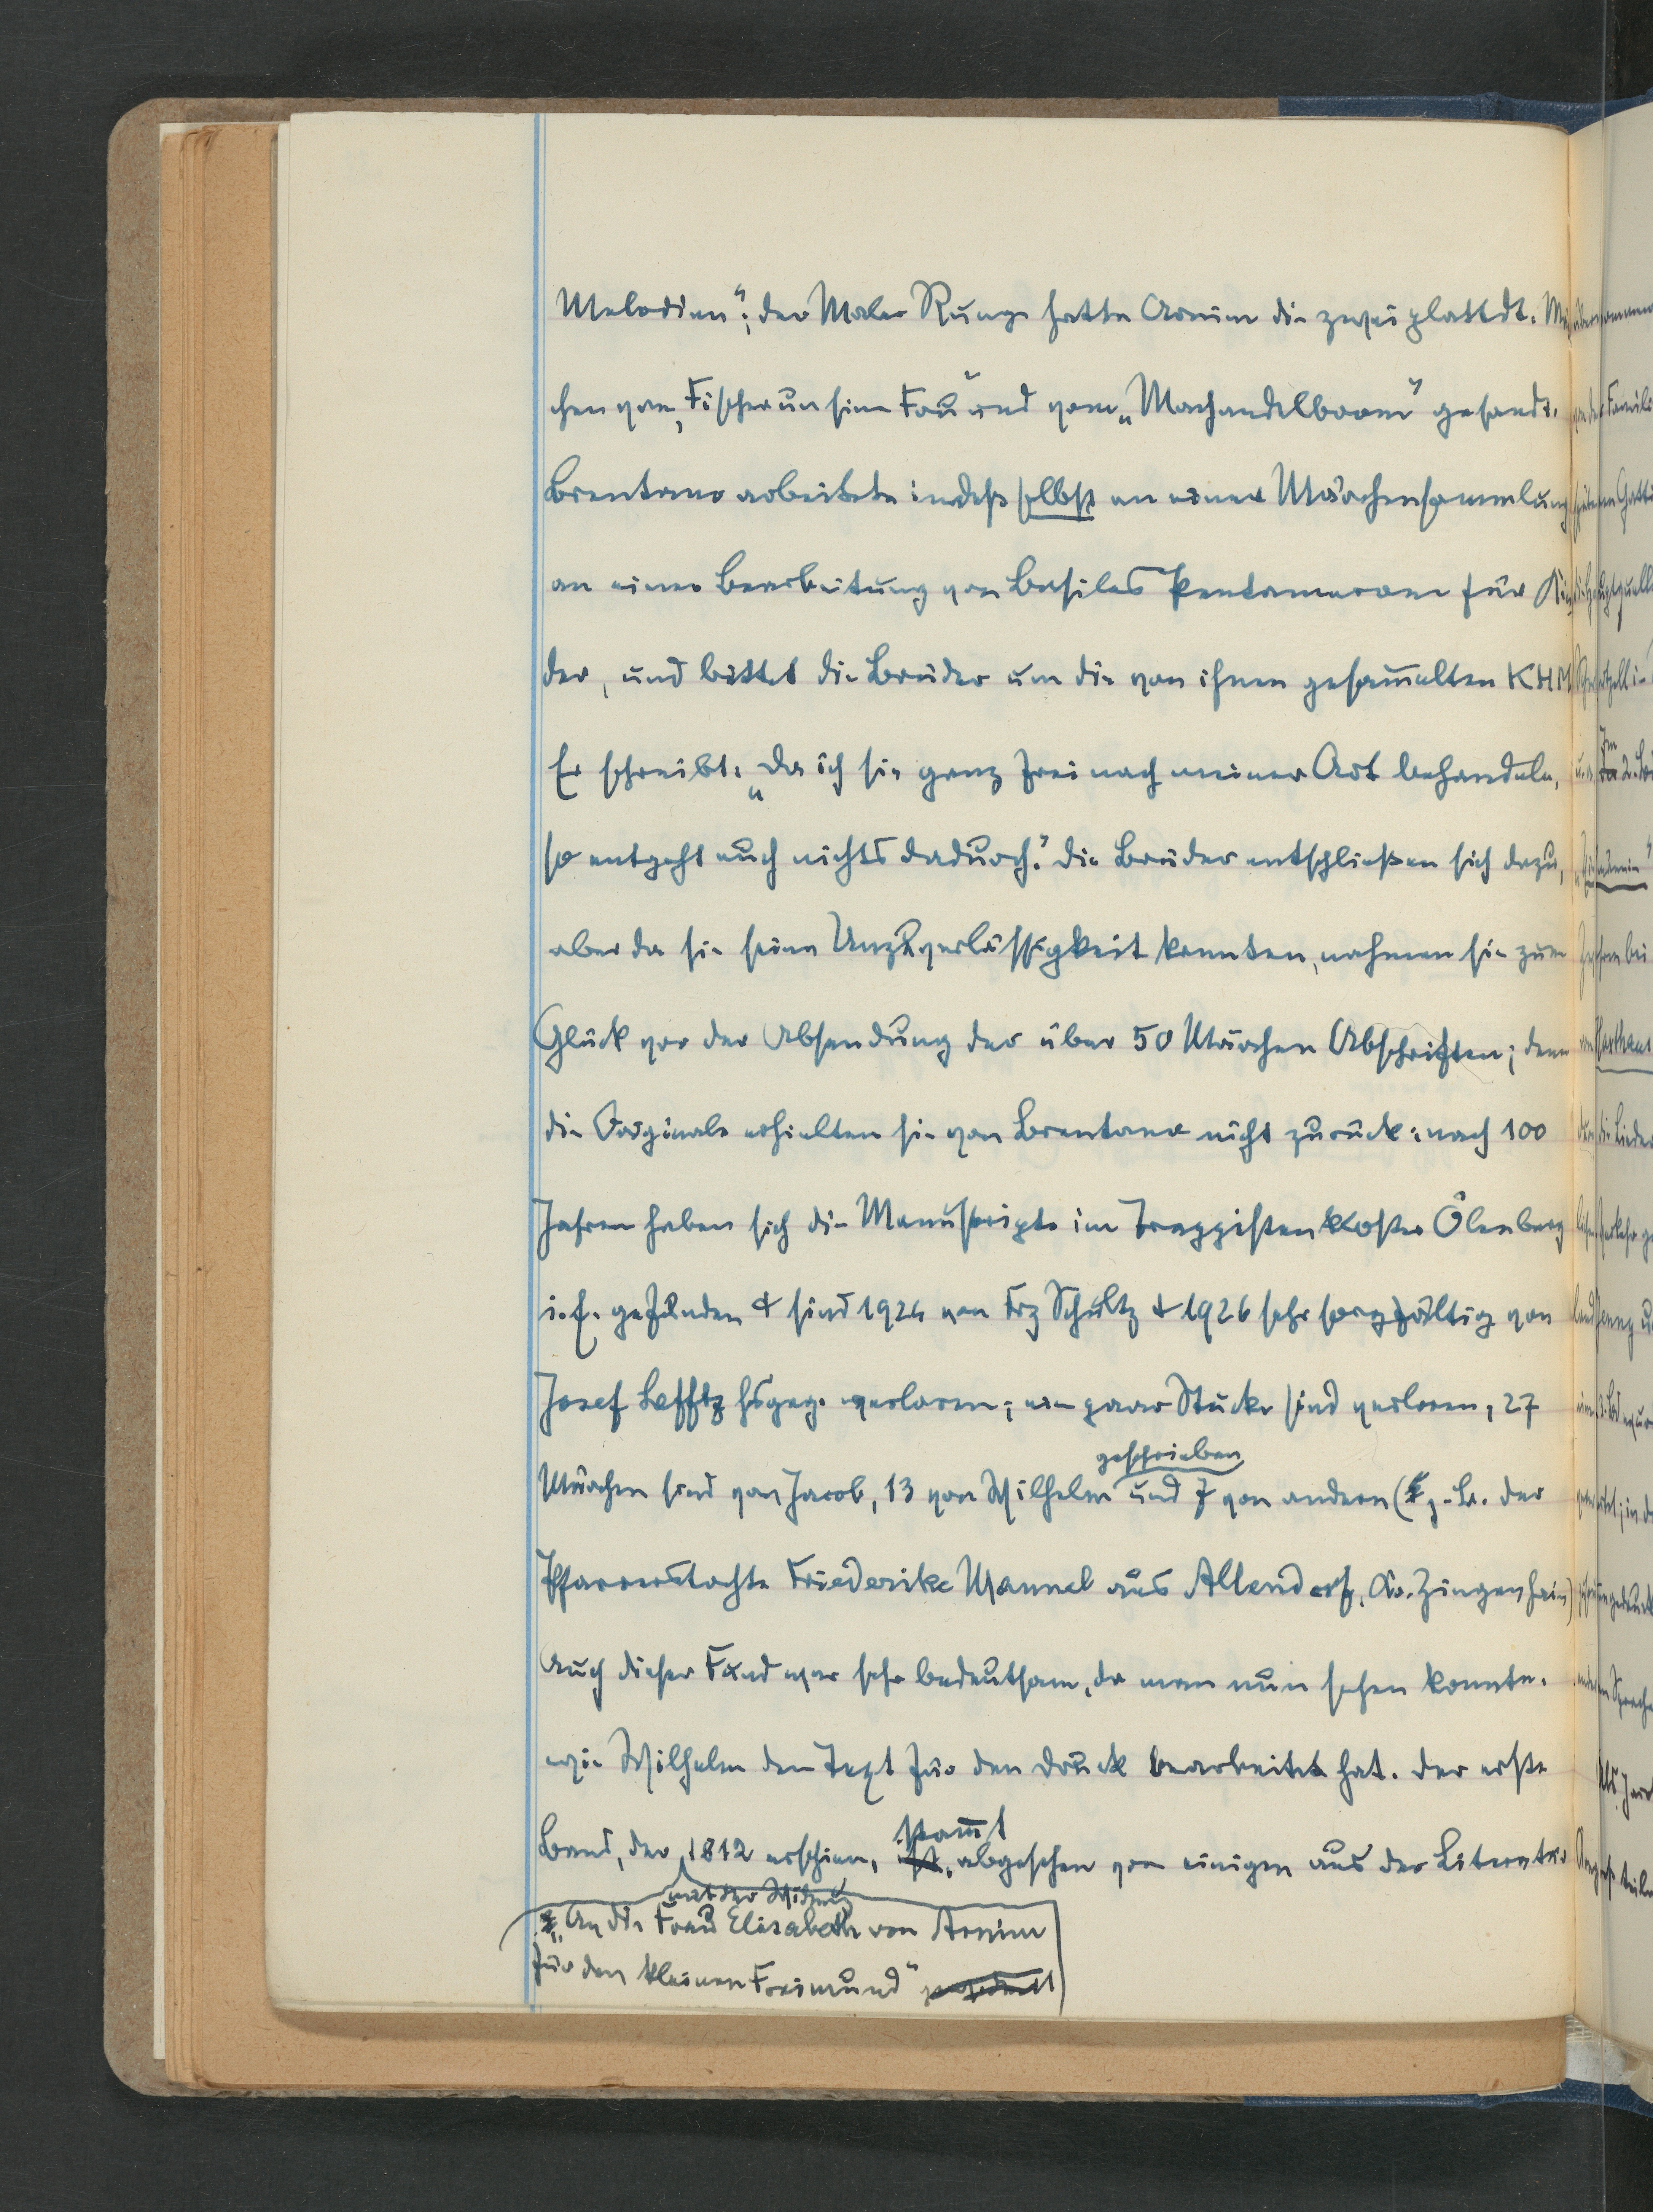 Melodien“; der Maler Runge hatte Arnim die zwei plattdt. Mär
chen vom „Fischer un sine Fru“ und vom „Machandelboom“ gesandt.
Brentano arbeitete indeß selbst an einer Märchensammlung
an einer Bearbeitung von Basiles Pentamerone für Kin
der, und bittet die Brüder um die von ihnen gesam̅elten KHM
Er schreibt: „Da ich sie ganz frei nach meiner Art behandele,
so entgeht euch nichts dadurch.“ Die Brüder entschließen sich dazu,
aber da sie seine Unzuverlässigkeit kannten, nahmen sie zum
Glück vor der Absendung der über 50 Märchen Abschriften; denn
die Originale erhielten sie von Brentano nicht zurück: nach 100
Jahren haben sich die Manuskripte im Trappistenkloster Ölenberg
i. E. gefunden & sind 1924 von Frz Schultz & 1926 sehr sorgfältig von
Josef Lefftz hsgeg. worden; ein paar Stücke sind verloren, 27
geschrieben
Märchen sind von Jacob, 13 von Wilhelm und 7 von andern (z. B. der
Pfarrerstochter Friederike Mannel aus Allendorf, Kr. Ziegenhain)
Auch dieser Fund war sehr bedeutsam, da man nun sehen konnte,
wie Wilhelm den Text für den Druck bearbeitet hat. Der erste
stam̅t
Band, der 1812 erschien, ist, abgesehen von einigen aus der Literatur
mit der Widmg
„An die Frau Elisabeth von Arnim
für den kleinen Freimund“